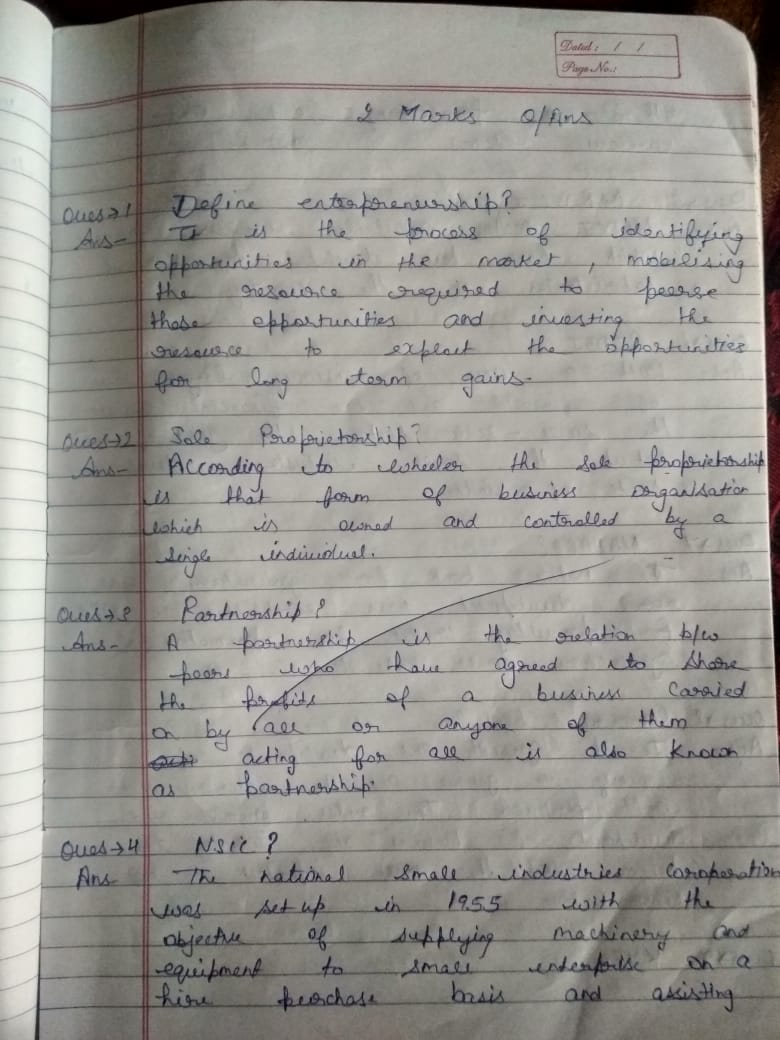 Dated: / /
Page No.:
2 Marks Q/Ans
Ques→1 Define enterpreneurship?
Ans- It is the process of identifying
opportunities in the market, mobilising
the resource required to peerse
those opportunities and investing the
resource to exploit the opportunities
for long term gains.
Ques→2 Sole Proprietorship?
Ans- According to wheeler the sole proprietorship
is that form of business organisation
which is owned and controlled by a
single individual.
Ques→3 Partnership?
Ans- A partnership is the relation b/w
who have agreed to share
the profits of a business carried
on by all or anyone of them
acting for all is also known
as partnership.
Ques→4 NSIC?
Ans- The national small industries coroporation
was set up in 1955 with the
objective of supplying machinery and
equipment to small enterprise on a
hire purchase basis and assisting